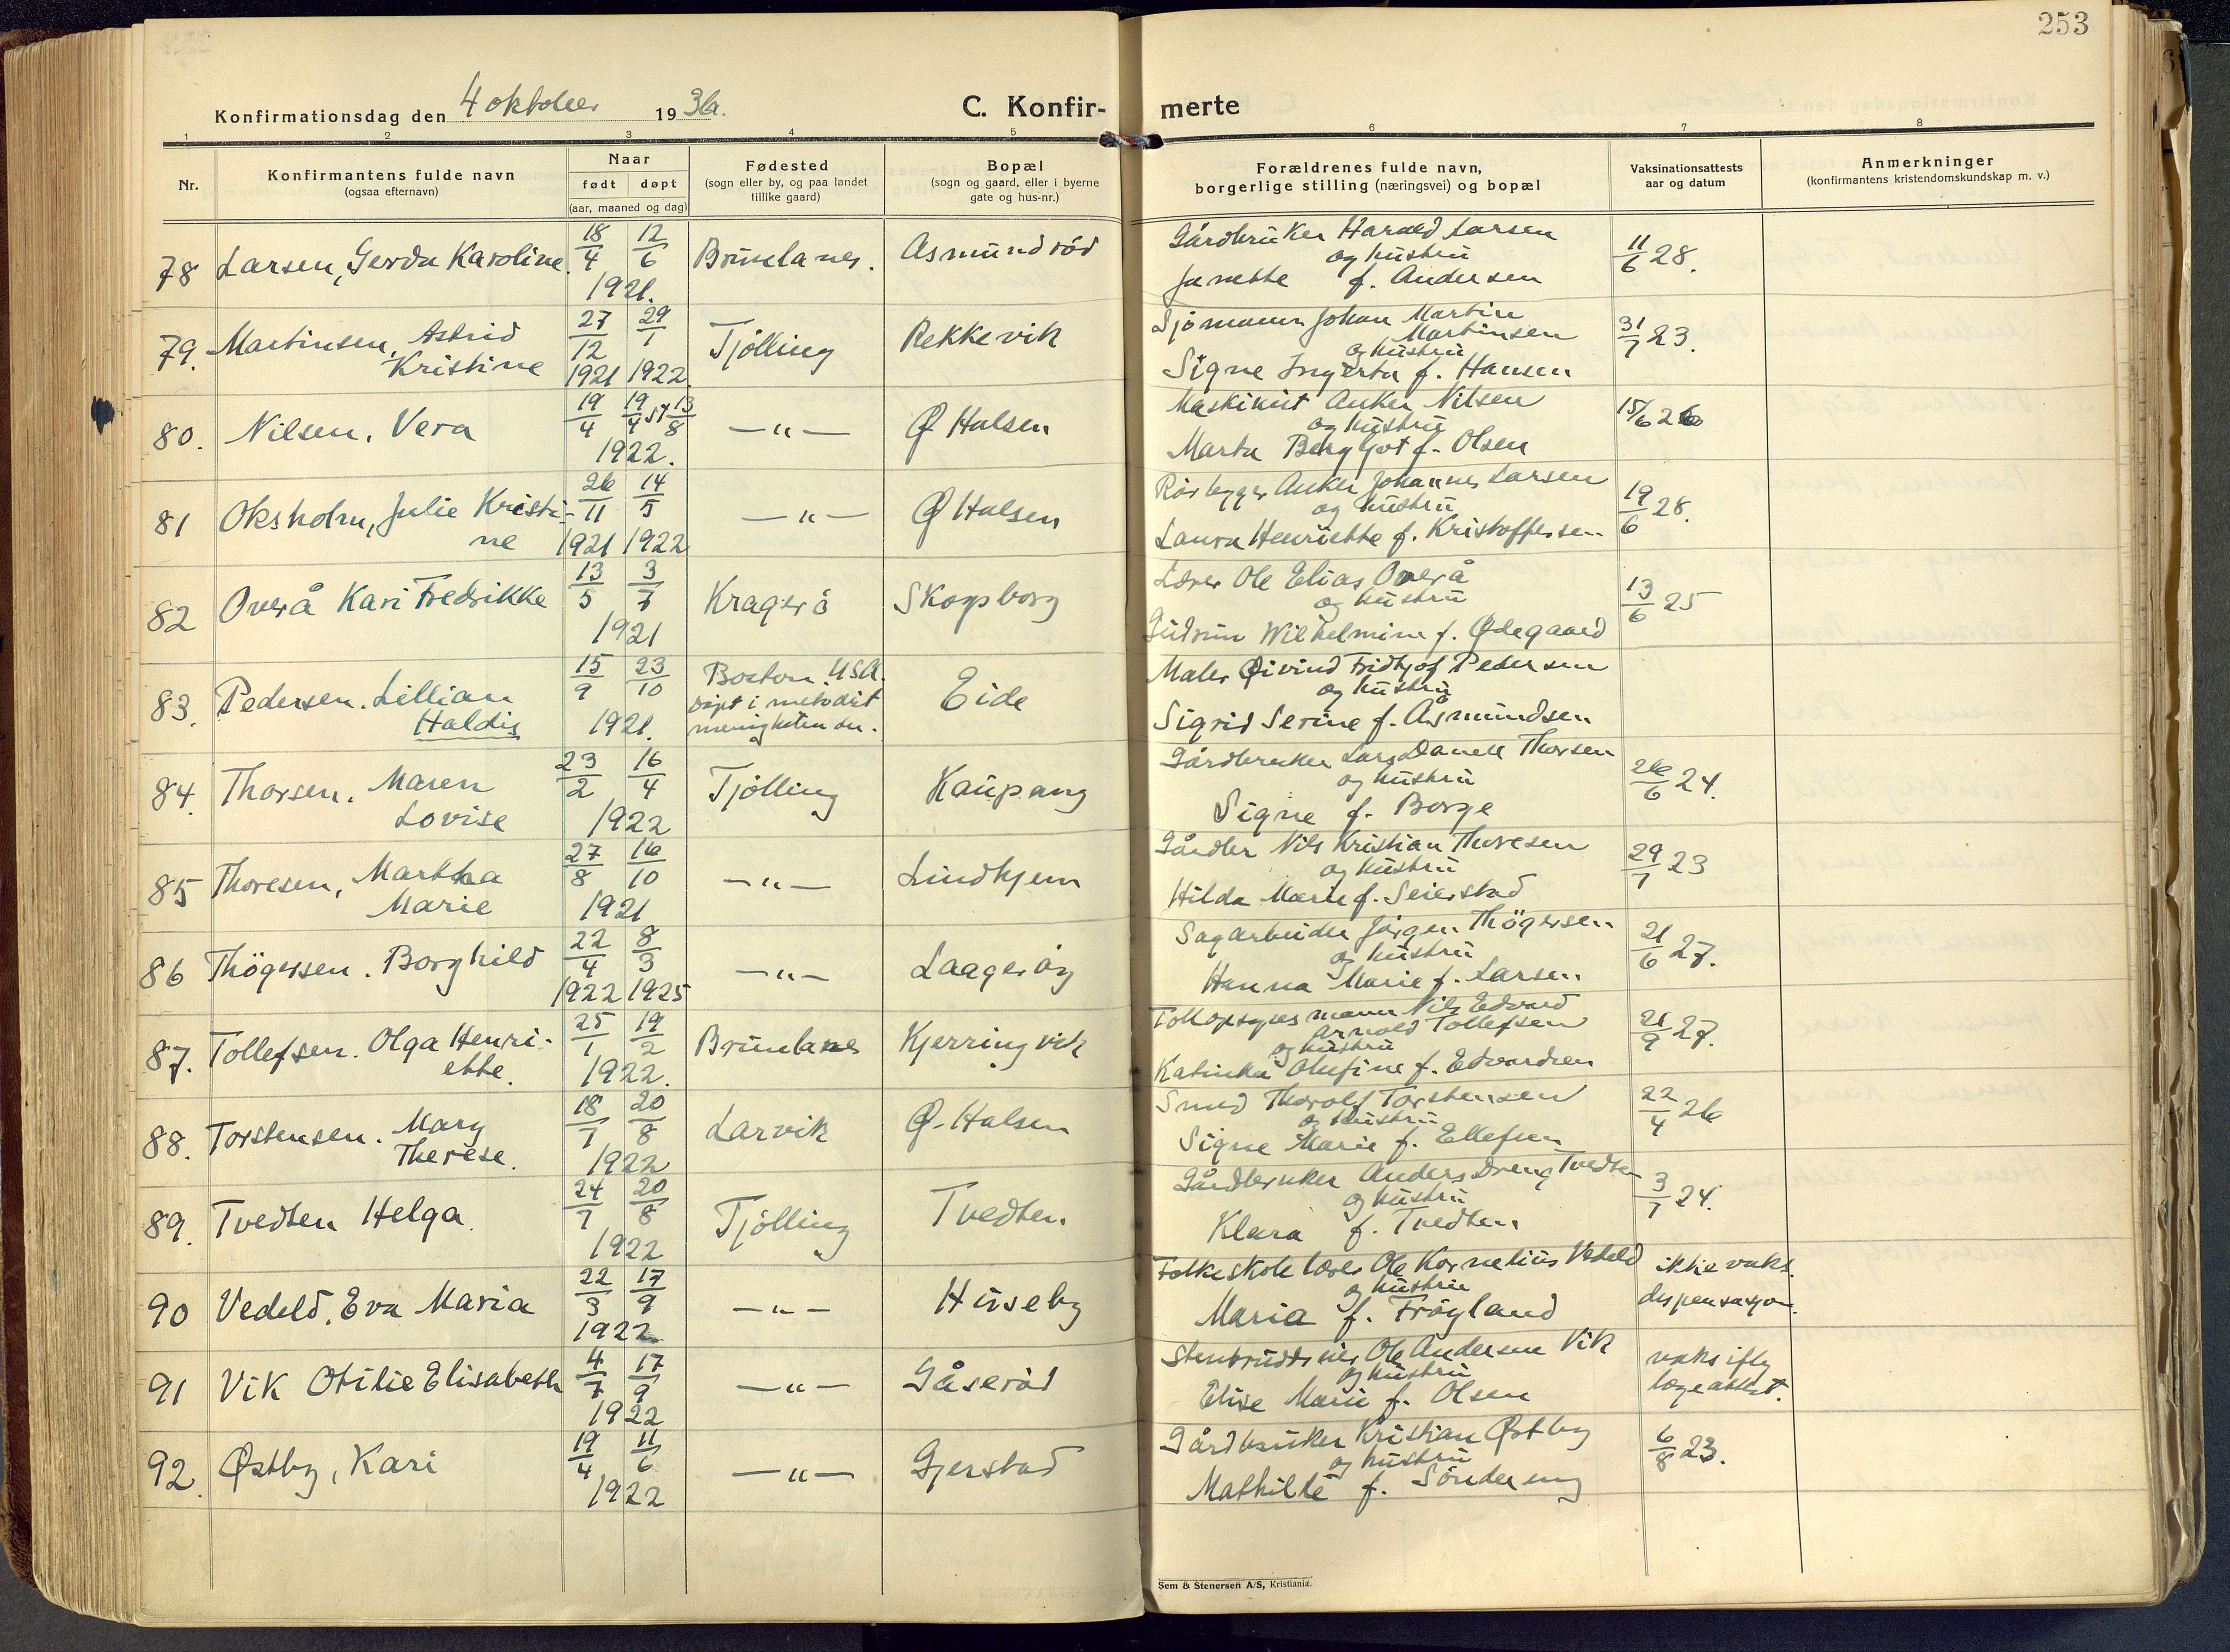 253
Konfirmationsdag den 4 oktober 1936.
C. Konfir- merte
1 2 3 4 5 6 7 8
Nr.
Konfirmantens fulde navn
(ogsaa efternavn)
Naar
født døpt
(aar, maaned og dag)
Fødested
(sogn eller by, og paa landet
tillike gaard)
Bopæl
(sogn og gaard, eller i byerne
gate og hus-nr.)
Forældrenes fulde navn,
borgerlige stilling (næringsvei) og bopæl
Vaksinationsattests
aar og datum
Anmerkninger
(konfirmantens kristendomskundskap m. v.)
78 Larsen, Gerda Karoline. 18/4 12/6 1921. Brunlanes. Asmundrød
Gårdbruker Harald Larsen
og hustru
Janette f. Andersen
11/6 28.
79. Martinsen, Astrid
Kristine
27/12 1921 29/1 1922. Tjølling Rekkevik
Sjømann Johan Martin
Martinsen
og hustru
Signe Ingerta f. Hansen
31/7 23.
80. Nilsen, Vera 19/4 19/4 st 13/8 1922. —"— Ø Halsen
Maskinist Anker Nilsen
og hustru
Marta Bergljot f. Olsen
15/6 26
81 Oksholm, Julie Kristi-
ne
26/11 1921 14/5 1922 —"— Ø Halsen
Rørbygger Anker Johannes Larsen
og hustru
Laura Henriette f. Kristoffersen
19/6 28.
82 Overå Kari Fredrikke 13/5 3/7 1921 Kragerö Skogsborg
Lærer Ole Elias Overå
og hustru
Gudrun Wilhelmine f. Ødegaard
13/6 25
83. Pedersen. Lillian
Haldis
15/9 23/10 1921. Boston. USA.
døpt i metodist
menigheten der.
Eide
Maler Øivind Fridtjof Pedersen
og hustru
Sigrid Serine f. Åsmundsen
84. Thorsen. Maren
Lovise
23/2 16/4 1922 Tjølling Kaupang
Gårdbruker Lars Daniel Thorsen
og hustru
Signe f. Borge
26/6 24.
85 Thoresen, Martha
Marie
27/8 16/10 1921 —"— Lindhjem
Gårdbr Nils Kristian Thoresen
og hustru
Hilda Marie f. Seierstad
29/7 23
86 Thögersen. Borghild 22/4 1922 8/3 1925 —"— Laageröy
Sagarbeider Jörgen Thögersen
og hustru
Hanna Marie f. Larsen
21/6 27.
87. Tollefsen. Olga Henri-
ette.
25/1 19/2 1922. Brunlanes Kjerringvik
Tollopsynsmann Nils Edvard
Arnold Tollefsen
og hustru
Katinka Olufine f. Edvardsen
21/9 27.
88. Torstensen. Mary
Therese.
18/7 20/8 1922 Larvik Ø. Halsen
Smed Thorolf Torstensen
og hustru
Signe Marie f. Ellefsen
22/4 26
89. Tvedten Helga. 24/7 20/8 1922 Tjølling Tvedten
Gårdbruker Anders Dreng Tvedten
og hustru
Klara f. Tvedten
3/7 24.
90 Vedeld, Eva Maria 22/3 17/9 1922 —"— Huseby
Folkeskolelærer Ole Kornelius Vedeld
og hustru
Maria f. Fröyland
ikke vaks.
dispensasjon.
91 Vik Otilie Elisabeth 4/7 17/9 1922 —"— Gåseröd
Ole Andersen Vik
og hustru
Elise Marie f. Olsen
vaks iflg
lægeattest.
92. Østby, Kari 19/4 11/6 1922 —"— Gjerstad
Gårdbruker Kristian Østby
og hustru
Mathilde f. Söndereng
6/8 23.
Sem & Stenersen A/S, Kristiania.